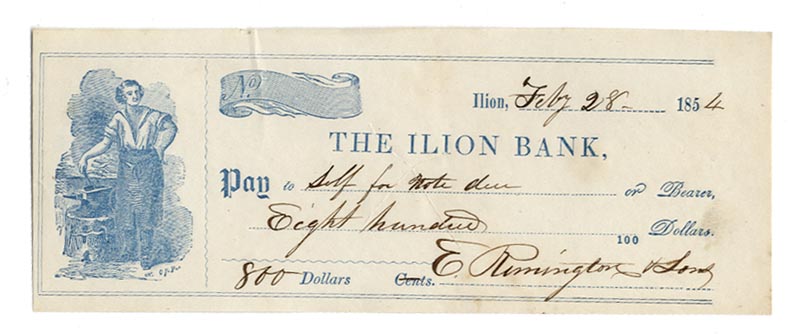 No.
Ilion, Feby 28 1854
THE ILION BANK,
Pay to Self for Note due or Bearer,
Eight hundred 100 Dollars.
800 Dollars Cents. E. Remington & Sons